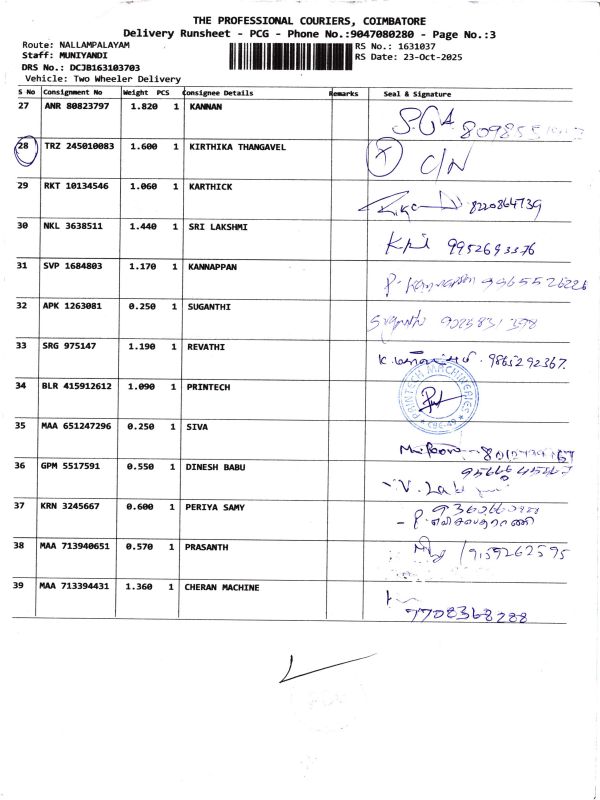 THE PROFESSIONAL COURIERS, COIMBATORE
Delivery Runsheet - PCG - Phone No.:9047080280 - Page No.:3
Route: NALLAMPALAYAM RS No.: 1631037
Staff: MUNIYANDI RS Date: 23-Oct-2025
DRS No.: DCJB163103703
Vehicle: Two Wheeler Delivery
S No Consignment No Weight PCS Consignee Details Remarks Seal & Signature
27 ANR 80823797 1.820 1 KANNAN
28 TRZ 245010083 1.600 1 KIRTHIKA THANGAVEL C/N
29 RKT 10134546 1.060 1 KARTHICK 8220864739
30 NKL 3638511 1.440 1 SRI LAKSHMI 9952693376
31 SVP 1684803 1.170 1 KANNAPPAN 9965526226
32 APK 1263081 0.250 1 SUGANTHI
33 SRG 975147 1.190 1 REVATHI 9865292367.
34 BLR 415912612 1.090 1 PRINTECH PRINTECH MACHINERIES CBE-49
35 MAA 651247296 0.250 1 SIVA
36 GPM 5517591 0.550 1 DINESH BABU
37 KRN 3245667 0.600 1 PERIYA SAMY
38 MAA 713940651 0.570 1 PRASANTH 9159262595
39 MAA 713394431 1.360 1 CHERAN MACHINE 7708368288